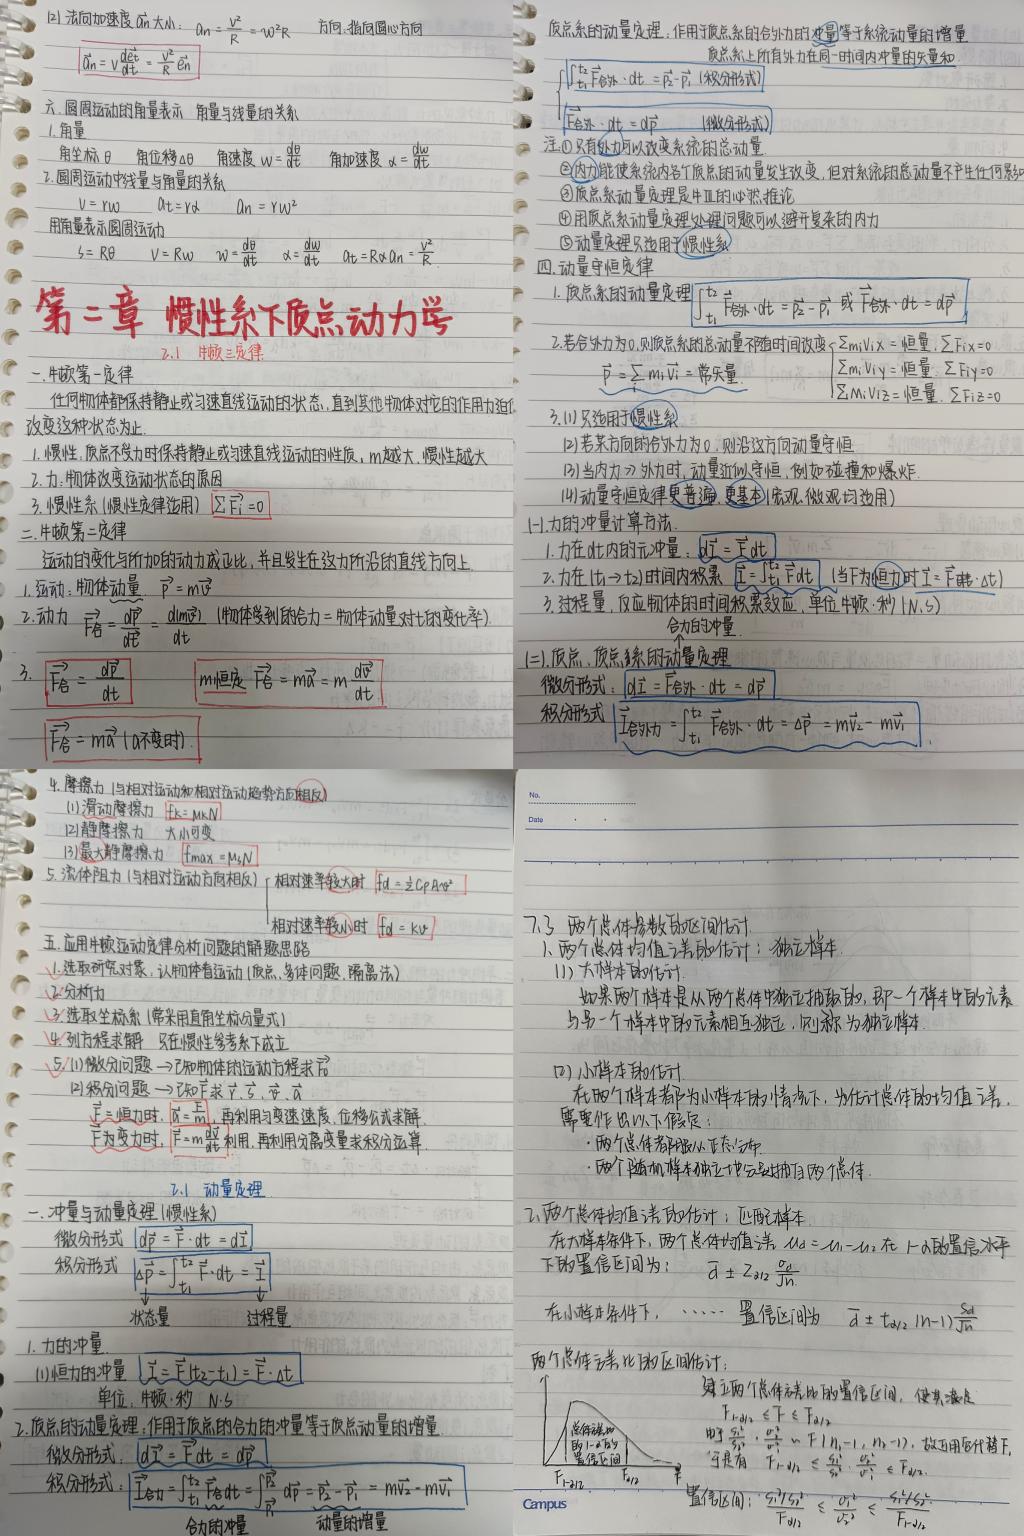 (2) 法向加速度 an 大小: an = v²/R = w²R 方向:指向圆心方向
an = v det/dt = v²/R en
六. 圆周运动的角量表示 角量与线量的关系
1. 角量
角坐标 θ 角位移 Δθ 角速度 w = dθ/dt 角加速度 α = dw/dt
2. 圆周运动中线量与角量的关系
v = rw at = rα an = rw²
用角量表示圆周运动
s = Rθ v = Rw w = dθ/dt α = dw/dt at = Rα an = v²/R
第二章 惯性系下质点动力学
2.1 牛顿三定律
一. 牛顿第一定律
任何物体都保持静止或匀速直线运动的状态,直到其他物体对它的作用力迫使
改变这种状态为止.
1. 惯性:质点不受力时保持静止或匀速直线运动的性质,m越大,惯性越大
2. 力:物体改变运动状态的原因
3. 惯性系 (惯性定律适用) ΣFi = 0
二. 牛顿第二定律
运动的变化与所加的动力成正比,并且发生在这力所沿的直线方向上
1. 运动:物体动量 p = mv
2. 动力 F合 = dp/dt = d(mv)/dt (物体受到的合力 = 物体动量对t的变化率)
3. F合 = dp/dt m恒定 F合 = ma = m dv/dt
F合 = ma (a不变时)
质点系的动量定理:作用于质点系的合外力的冲量等于系统动量的增量
质点系上所有外力在同一时间内冲量的矢量和
∫t1 t2 F合外·dt = p2 - p1 (积分形式)
F合外·dt = dp (微分形式)
注:①只有外力可以改变系统的总动量
②内力能使系统内各个质点的动量发生改变,但对系统的总动量不产生任何影响
③质点系动量定理是牛Ⅲ的必然推论
④用质点系动量定理处理问题可以避开复杂的内力
⑤动量定理只适用于惯性系
四. 动量守恒定律
1. 质点系的动量定理 ∫t1 t2 F合外·dt = p2 - p1 或 F合外·dt = dp
2. 若合外力为0,则质点系的总动量不随时间改变
p = Σ mivi = 常矢量.
Σmivix = 恒量, ΣFix=0
Σmiviy = 恒量, ΣFiy=0
Σmiviz = 恒量, ΣFiz=0
3. (1) 只适用于惯性系
(2) 若某方向的合外力为0,则沿这方向动量守恒
(3) 当内力>>外力时,动量近似守恒,例如碰撞和爆炸.
(4) 动量守恒定律更普遍、更基本 (宏观、微观均适用)
(一). 力的冲量计算方法.
1. 力在dt内的元冲量: dI = Fdt
2. 力在(t1→t2)时间内积累 I = ∫t1 t2 Fdt (当F为恒力时 I = F·Δt)
3. 过程量,反应物体的时间积累效应,单位牛顿·秒 (N.S)
合力的冲量
(二). 质点、质点系的动量定理
微分形式: dI = F合外·dt = dp
积分形式 I合外力 = ∫t1 t2 F合外·dt = Δp = mv2 - mv1
4. 摩擦力 (与相对运动和相对运动趋势方向相反)
(1) 滑动摩擦力 fk = μkN
(2) 静摩擦力 大小可变
(3) 最大静摩擦力 fmax = μsN
5. 流体阻力 (与相对运动方向相反) 相对速率较大时 fd = ½CρAv²
相对速率较小时 fd = kv
五. 应用牛顿运动定律分析问题的解题思路
1. 选取研究对象,认物体看运动 (质点、多体问题、隔离法)
2. 分析力
3. 选取坐标系 (常采用直角坐标分量式)
4. 列方程求解 只在惯性参考系下成立
5. (1) 微分问题 → 已知物体的运动方程求F
(2) 积分问题 → 已知F求 r、s、v、a
F=恒力时, a = F/m, 再利用匀变速速度、位移公式求解.
F为变力时, F = m dv/dt 利用,再利用分离变量求积分运算.
2.1 动量定理
一. 冲量与动量定理 (惯性系)
微分形式 dp = F·dt = dI
积分形式 Δp = ∫t1 t2 F·dt = I
状态量 过程量
1. 力的冲量
(1) 恒力的冲量 I = F(t2-t1) = F·Δt
单位:牛顿·秒 N·S
2. 质点的动量定理:作用于质点的合力的冲量等于质点动量的增量
微分形式: dI = Fdt = dp
积分形式: I合力 = ∫t1 t2 F合dt = ∫p1 p2 dp = p2 - p1 = mv2 - mv1
合力的冲量 动量的增量
No.
Date
7.3 两个总体参数的区间估计
1. 两个总体均值之差的估计: 独立样本
(1) 大样本的估计.
如果两个样本是从两个总体中独立抽取的,即一个样本中的元素
与另一个样本中的元素相互独立,则称为独立样本.
(2) 小样本的估计.
在两个样本都为小样本的情况下,为估计总体的均值之差,
需要作出以下假定:
·两个总体都服从正态分布.
·两个随机样本独立地分别抽自两个总体.
2. 两个总体均值之差的估计: 匹配样本
在大样本条件下,两个总体均值之差 μd = μ1 - μ2 在 1-α的置信水平
下的置信区间为: d ± Zα/2 σd/√n
在小样本条件下, ······ 置信区间为 d ± tα/2 (n-1) Sd/√n
两个总体方差比的区间估计:
建立两个总体方差比的置信区间,使其满足
F1-α/2 ≤ F ≤ Fα/2
由于 S1²/S2² · σ2²/σ1² ~ F(n1-1, n2-1), 故可用它代替F,
于是有 F1-α/2 ≤ S1²/S2² · σ2²/σ1² ≤ Fα/2.
总体方差比
的1-α的
置信区间
F1-α/2 Fα/2 F
置信区间: S1²/S2² / Fα/2 ≤ σ1²/σ2² ≤ S1²/S2² / F1-α/2
Campus